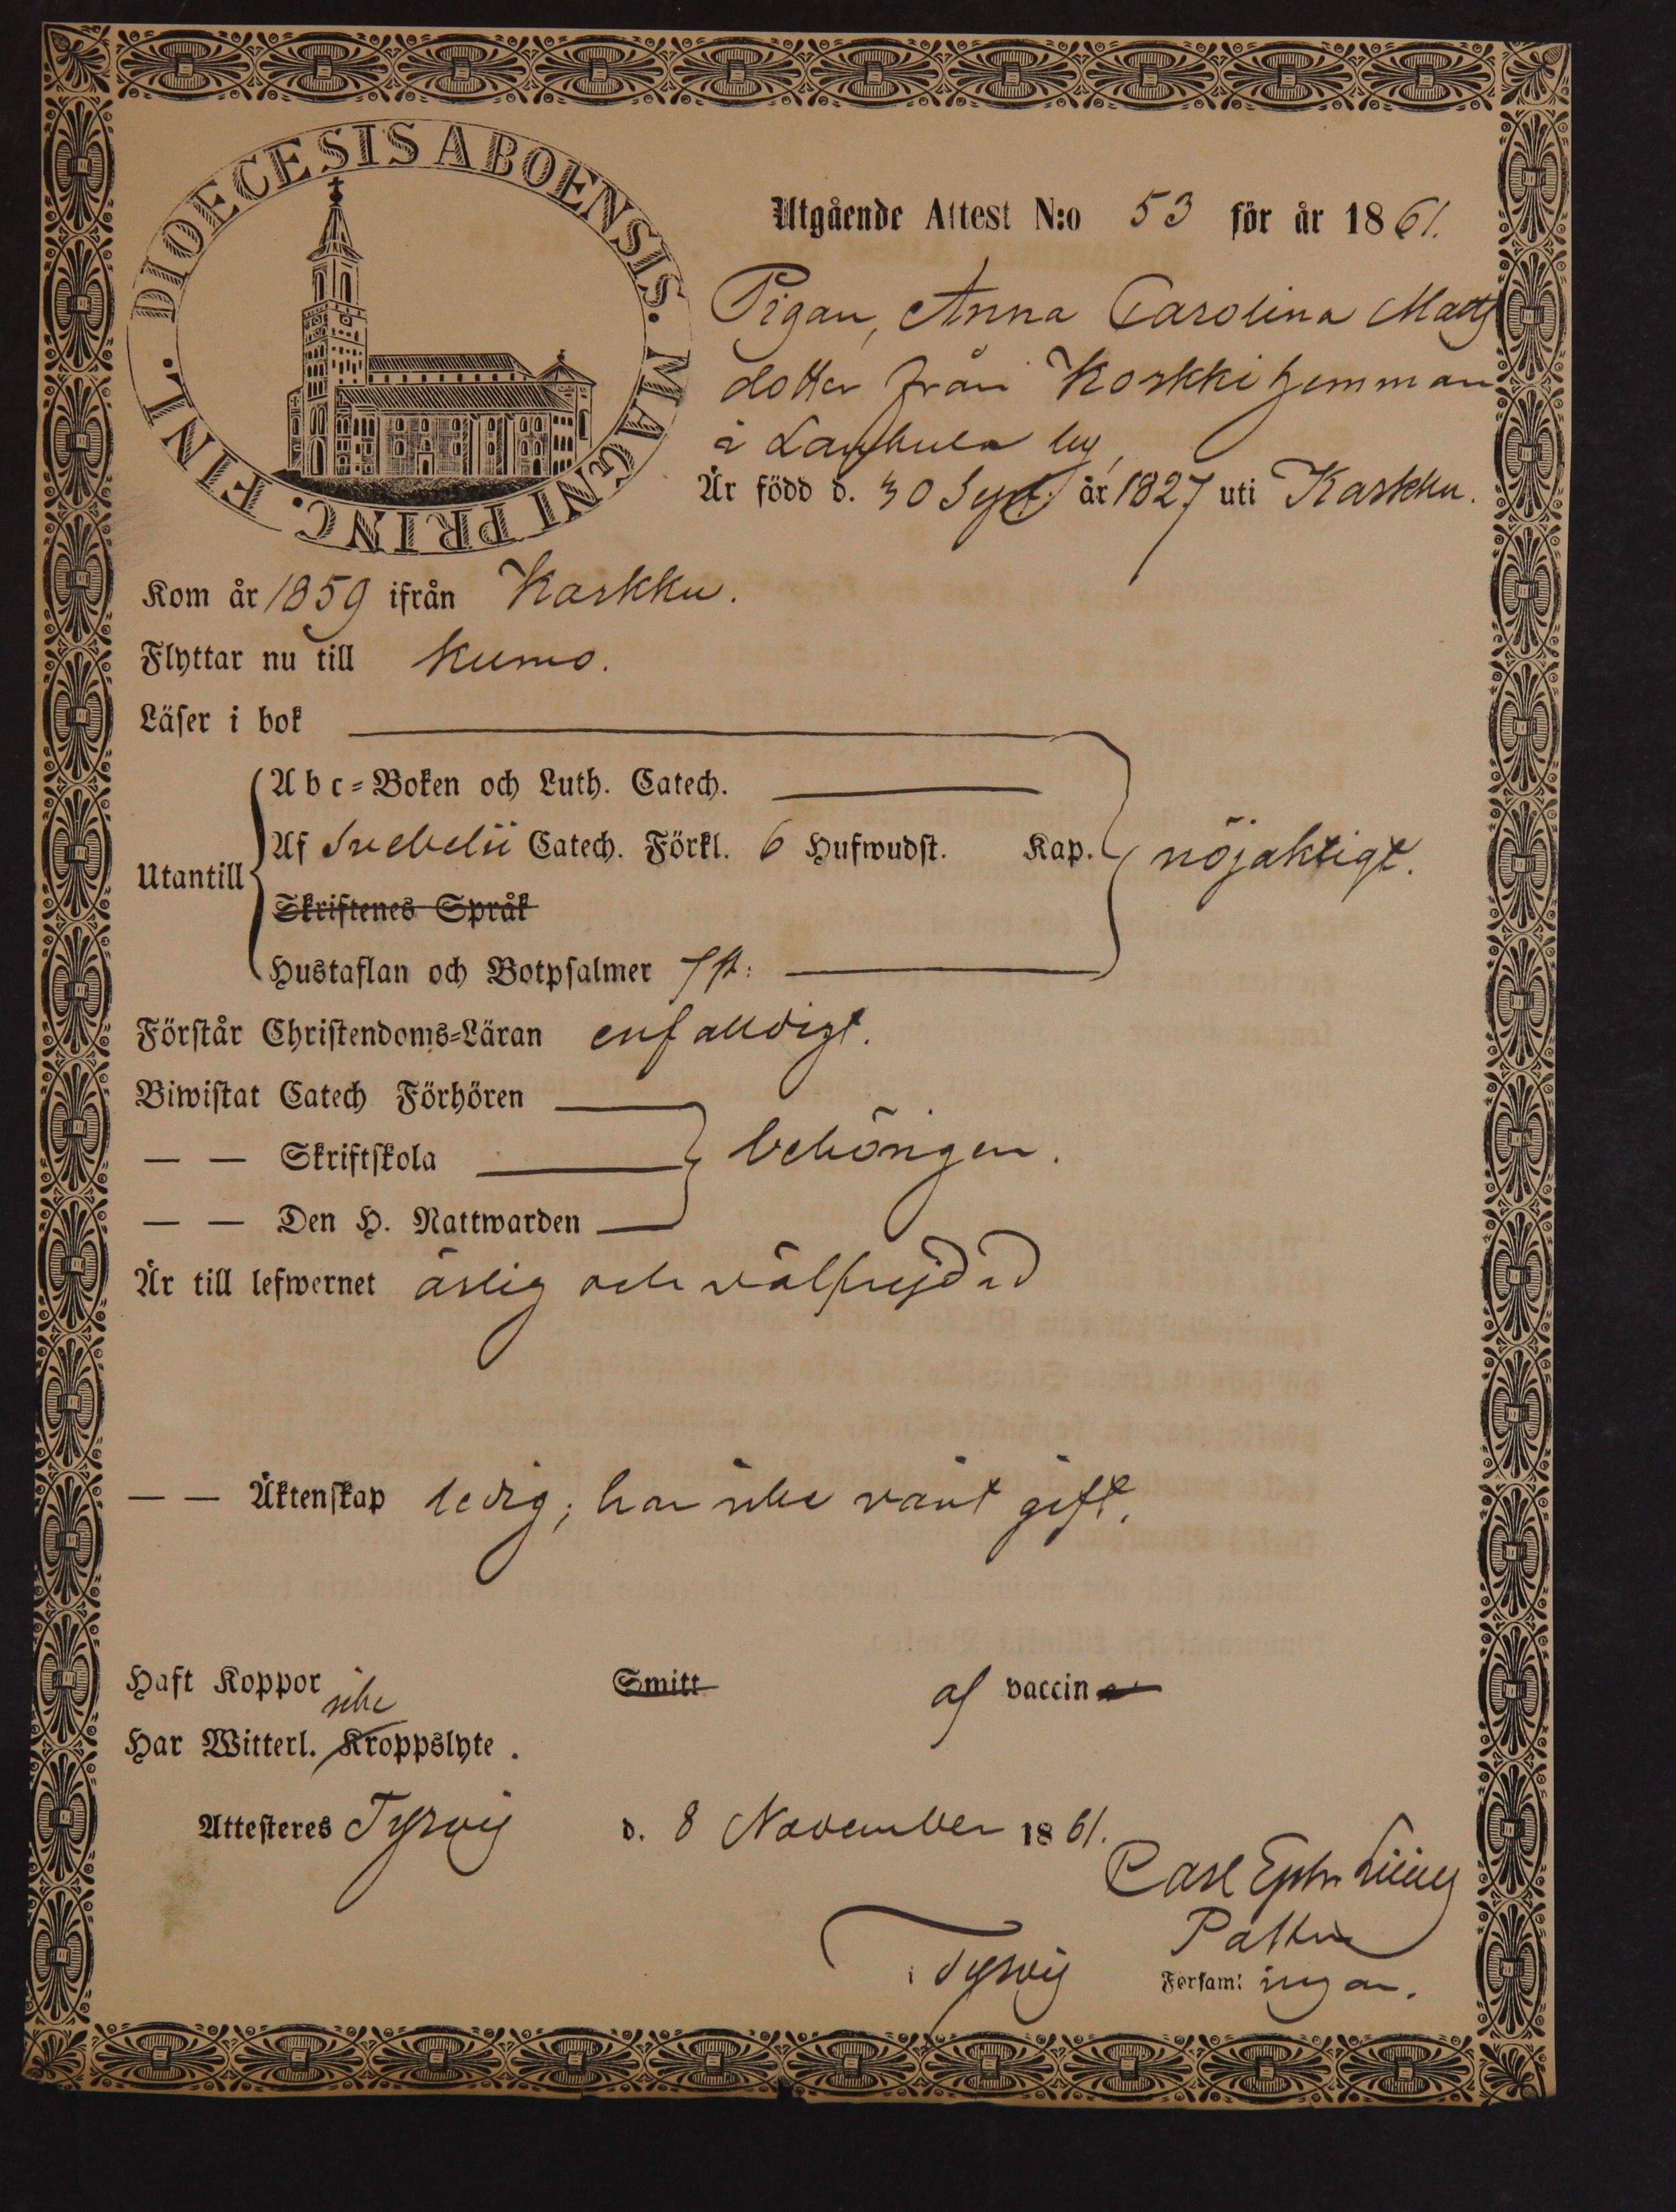 DIOECESIS ABOENSIS. MAGNI PRINC. FINL.
Utgående Attest N:o 53 för år 1861.
Pigan, Anna Carolina Matts
dotter från Koskki hemman
i by,
Är född d. 30 Sept. år 1827 uti Karkku.
Kom år 1859 ifrån Karkku.
Flyttar nu till Kumo.
Läser i bok
Abc-Boken och Luth. Catech.
Utantill Af Svebelii Catech. Förkl. 6 Hufwudst. Kap. nöjaktigt.
Skriftenes Språk
Hustaflan och Botpsalmer 7 st:
Förstår Christendoms-Läran enfalldigt.
Biwistat Catech Förhören
— — Skriftskola behörigen.
— — Den H. Nattwarden
Är till lefwernet ärlig och välfrejdad
— — Äktenskap ledig; har icke varit gift.
Haft Koppor Smitt af vaccin
icke
Har Witterl. Kroppslyte.
Attesteres Tyrvis d. 8 November 1861.
Carl Ephr.
i Tyrvis Församl ingar.